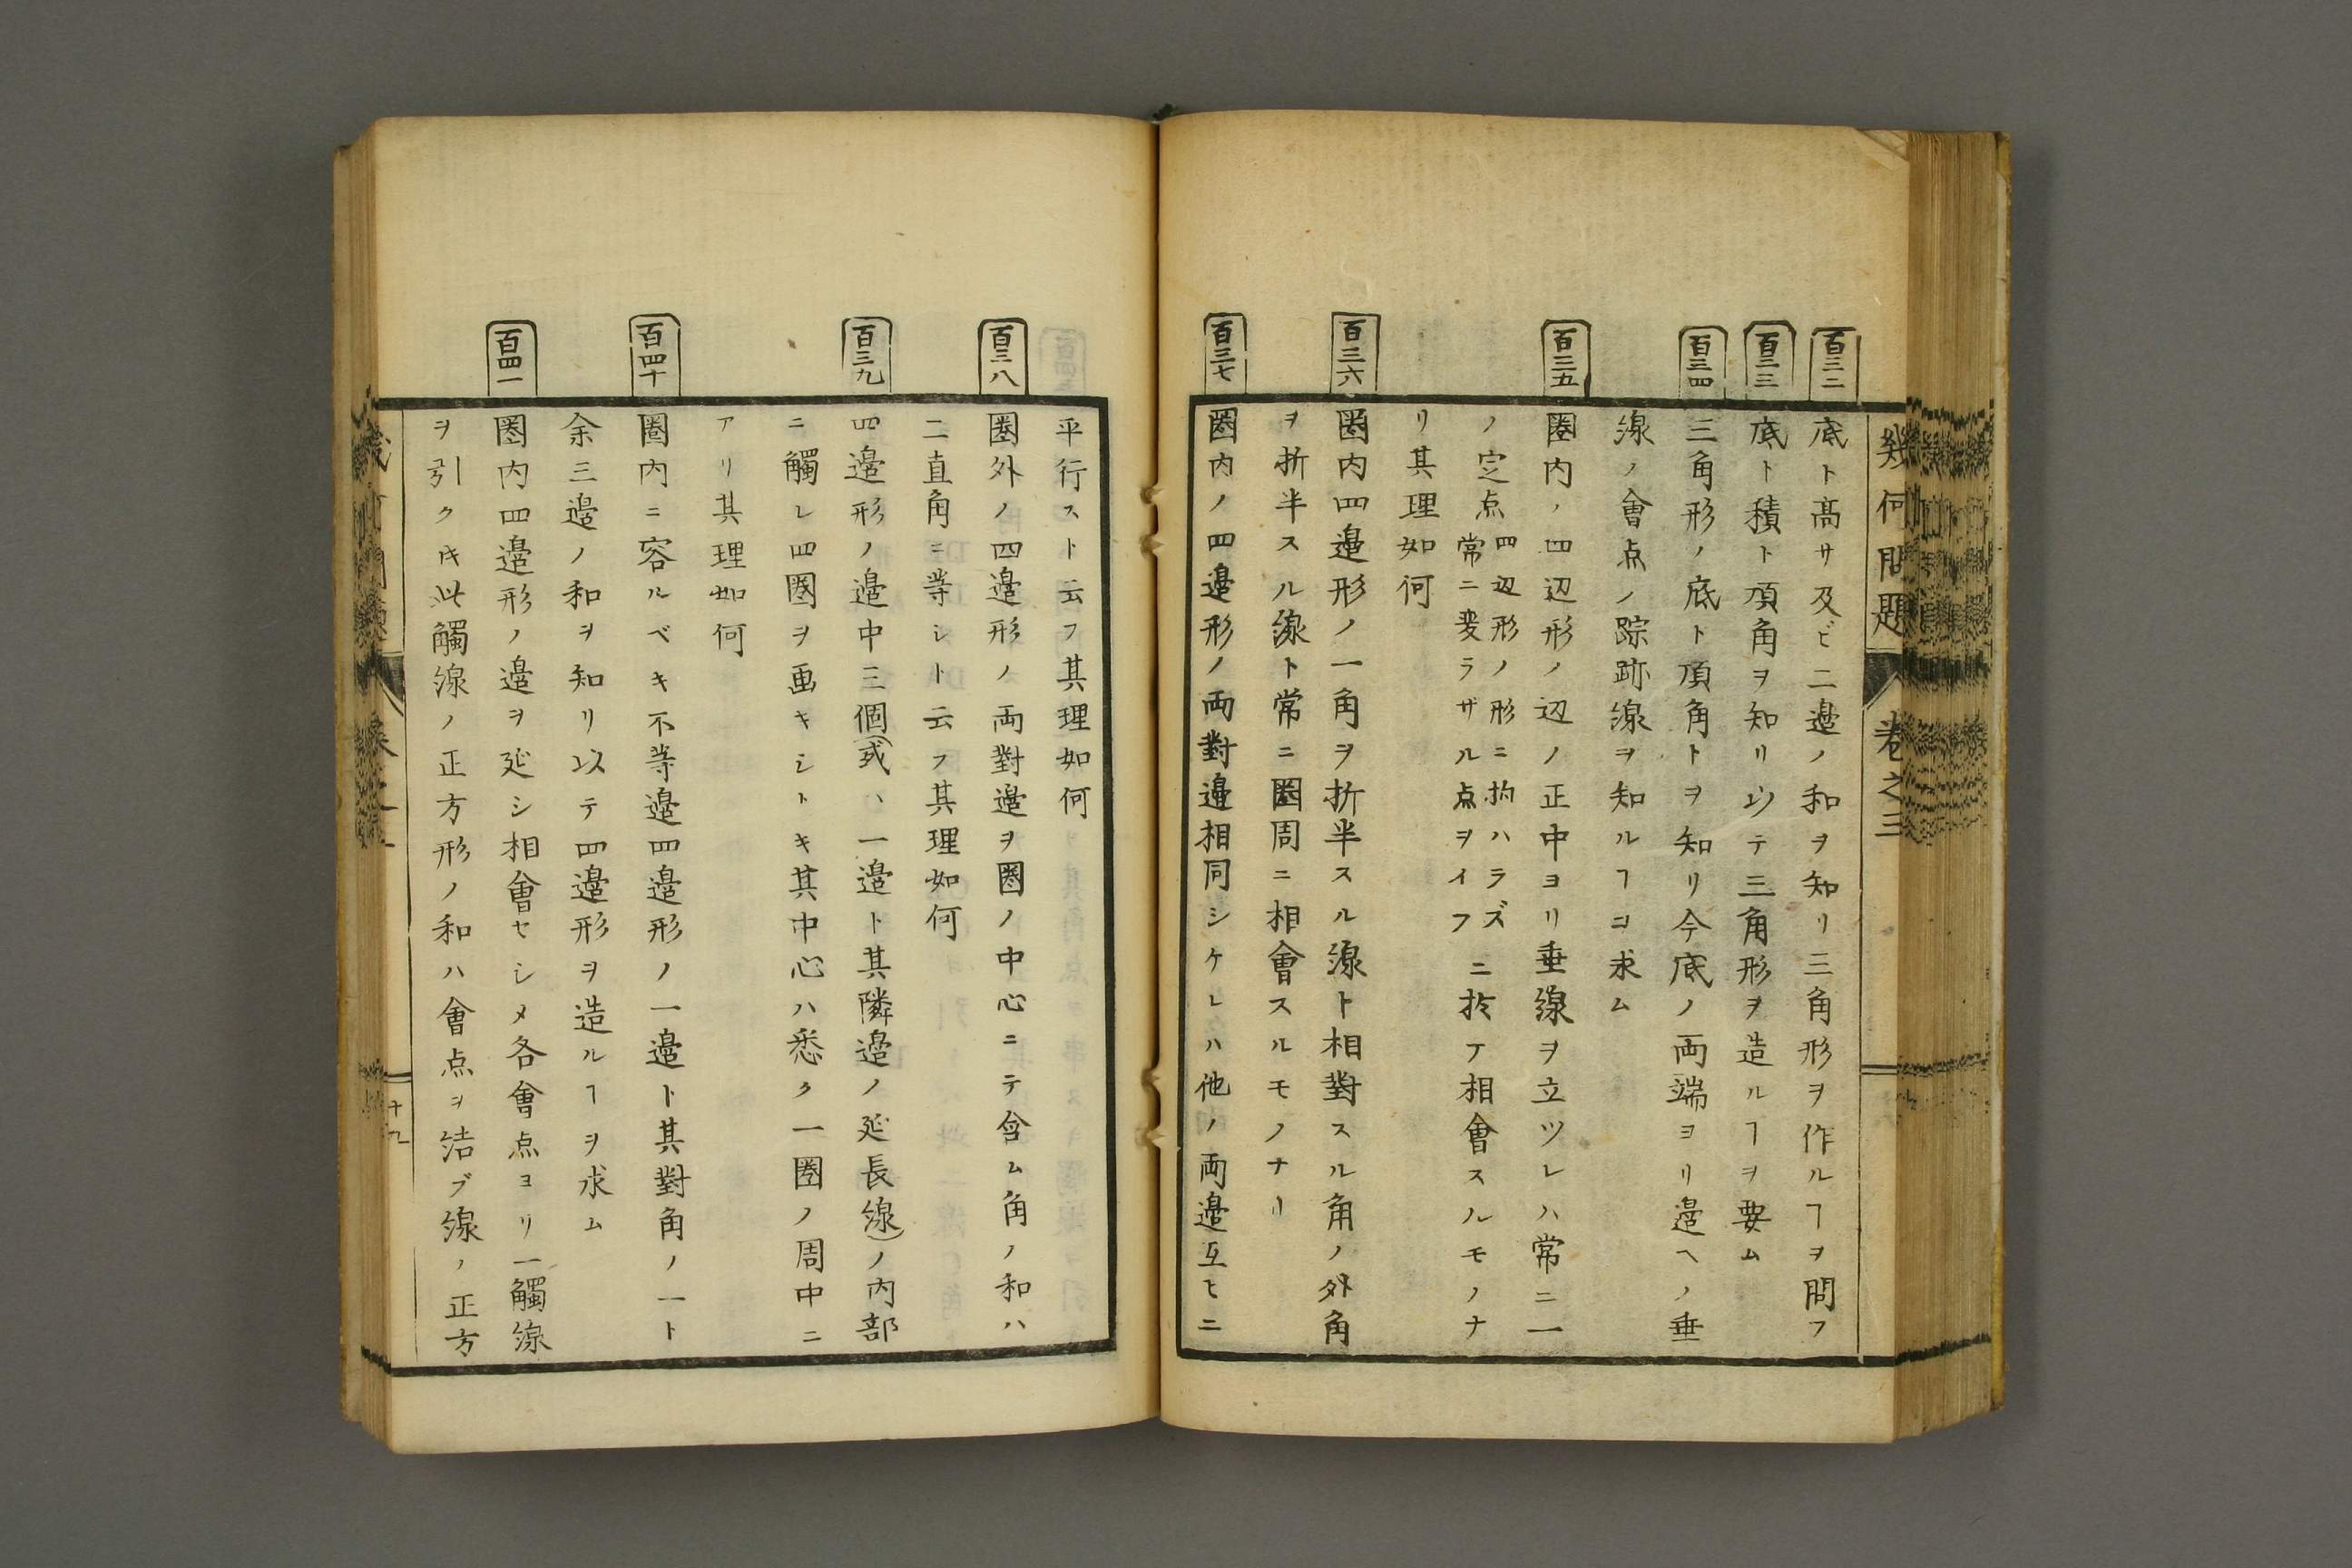 幾何問題
卷之三
百三二
底ト高サ及ビ二邉ノ和ヲ知リ三角形ヲ作ルヿヲ問フ
百三三
底ト積ト頂角ヲ知リ以テ三角形ヲ造ルヿヲ要ム
百三四
三角形ノ底ト頂角トヲ知リ今底ノ両端ヨリ邉ヘノ垂
線ノ會点ノ踪跡線ヲ知ルヿヲ求ム
百三五
圏内ノ四辺形ノ辺ノ正中ヨリ垂線ヲ立ツレハ常ニ一
ノ定点
四辺形ノ形ニ拘ハラズ
常ニ変ラザル点ヲイフ
ニ於テ相會スルモノナ
リ其理如何
百三六
圏内四邉形ノ一角ヲ折半スル線ト相對スル角ノ外角
ヲ折半スル線ト常ニ圏周ニ相會スルモノナリ
百三七
圏内ノ四邉形ノ両對邉相同シケレハ他ノ両邉互ヒニ
平行スト云フ其理如何
百三八
圏外ノ四邉形ノ両對邉ヲ圏ノ中心ニテ含ム角ノ和ハ
二直角ニ等シト云フ其理如何
百三九
四邉形ノ邉中三個(或ハ一邉ト其隣邉ノ延長線)ノ内部
ニ觸レ四圏ヲ画キシトキ其中心ハ悉ク一圏ノ周中ニ
アリ其理如何
百四十
圏内ニ容ルベキ不等邉四邉形ノ一邉ト其對角ノ一ト
余三邉ノ和ヲ知リ以テ四邉形ヲ造ルヿヲ求ム
百四一
圏内四邉形ノ邉ヲ延シ相會セシメ各會点ヨリ一觸線
ヲ引クキ此觸線ノ正方形ノ和ハ會点ヲ結ブ線ノ正方
十九